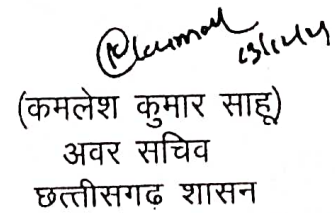 (कमलेश कुमार साहू)
अवर सचिव
छत्तीसगढ़ शासन